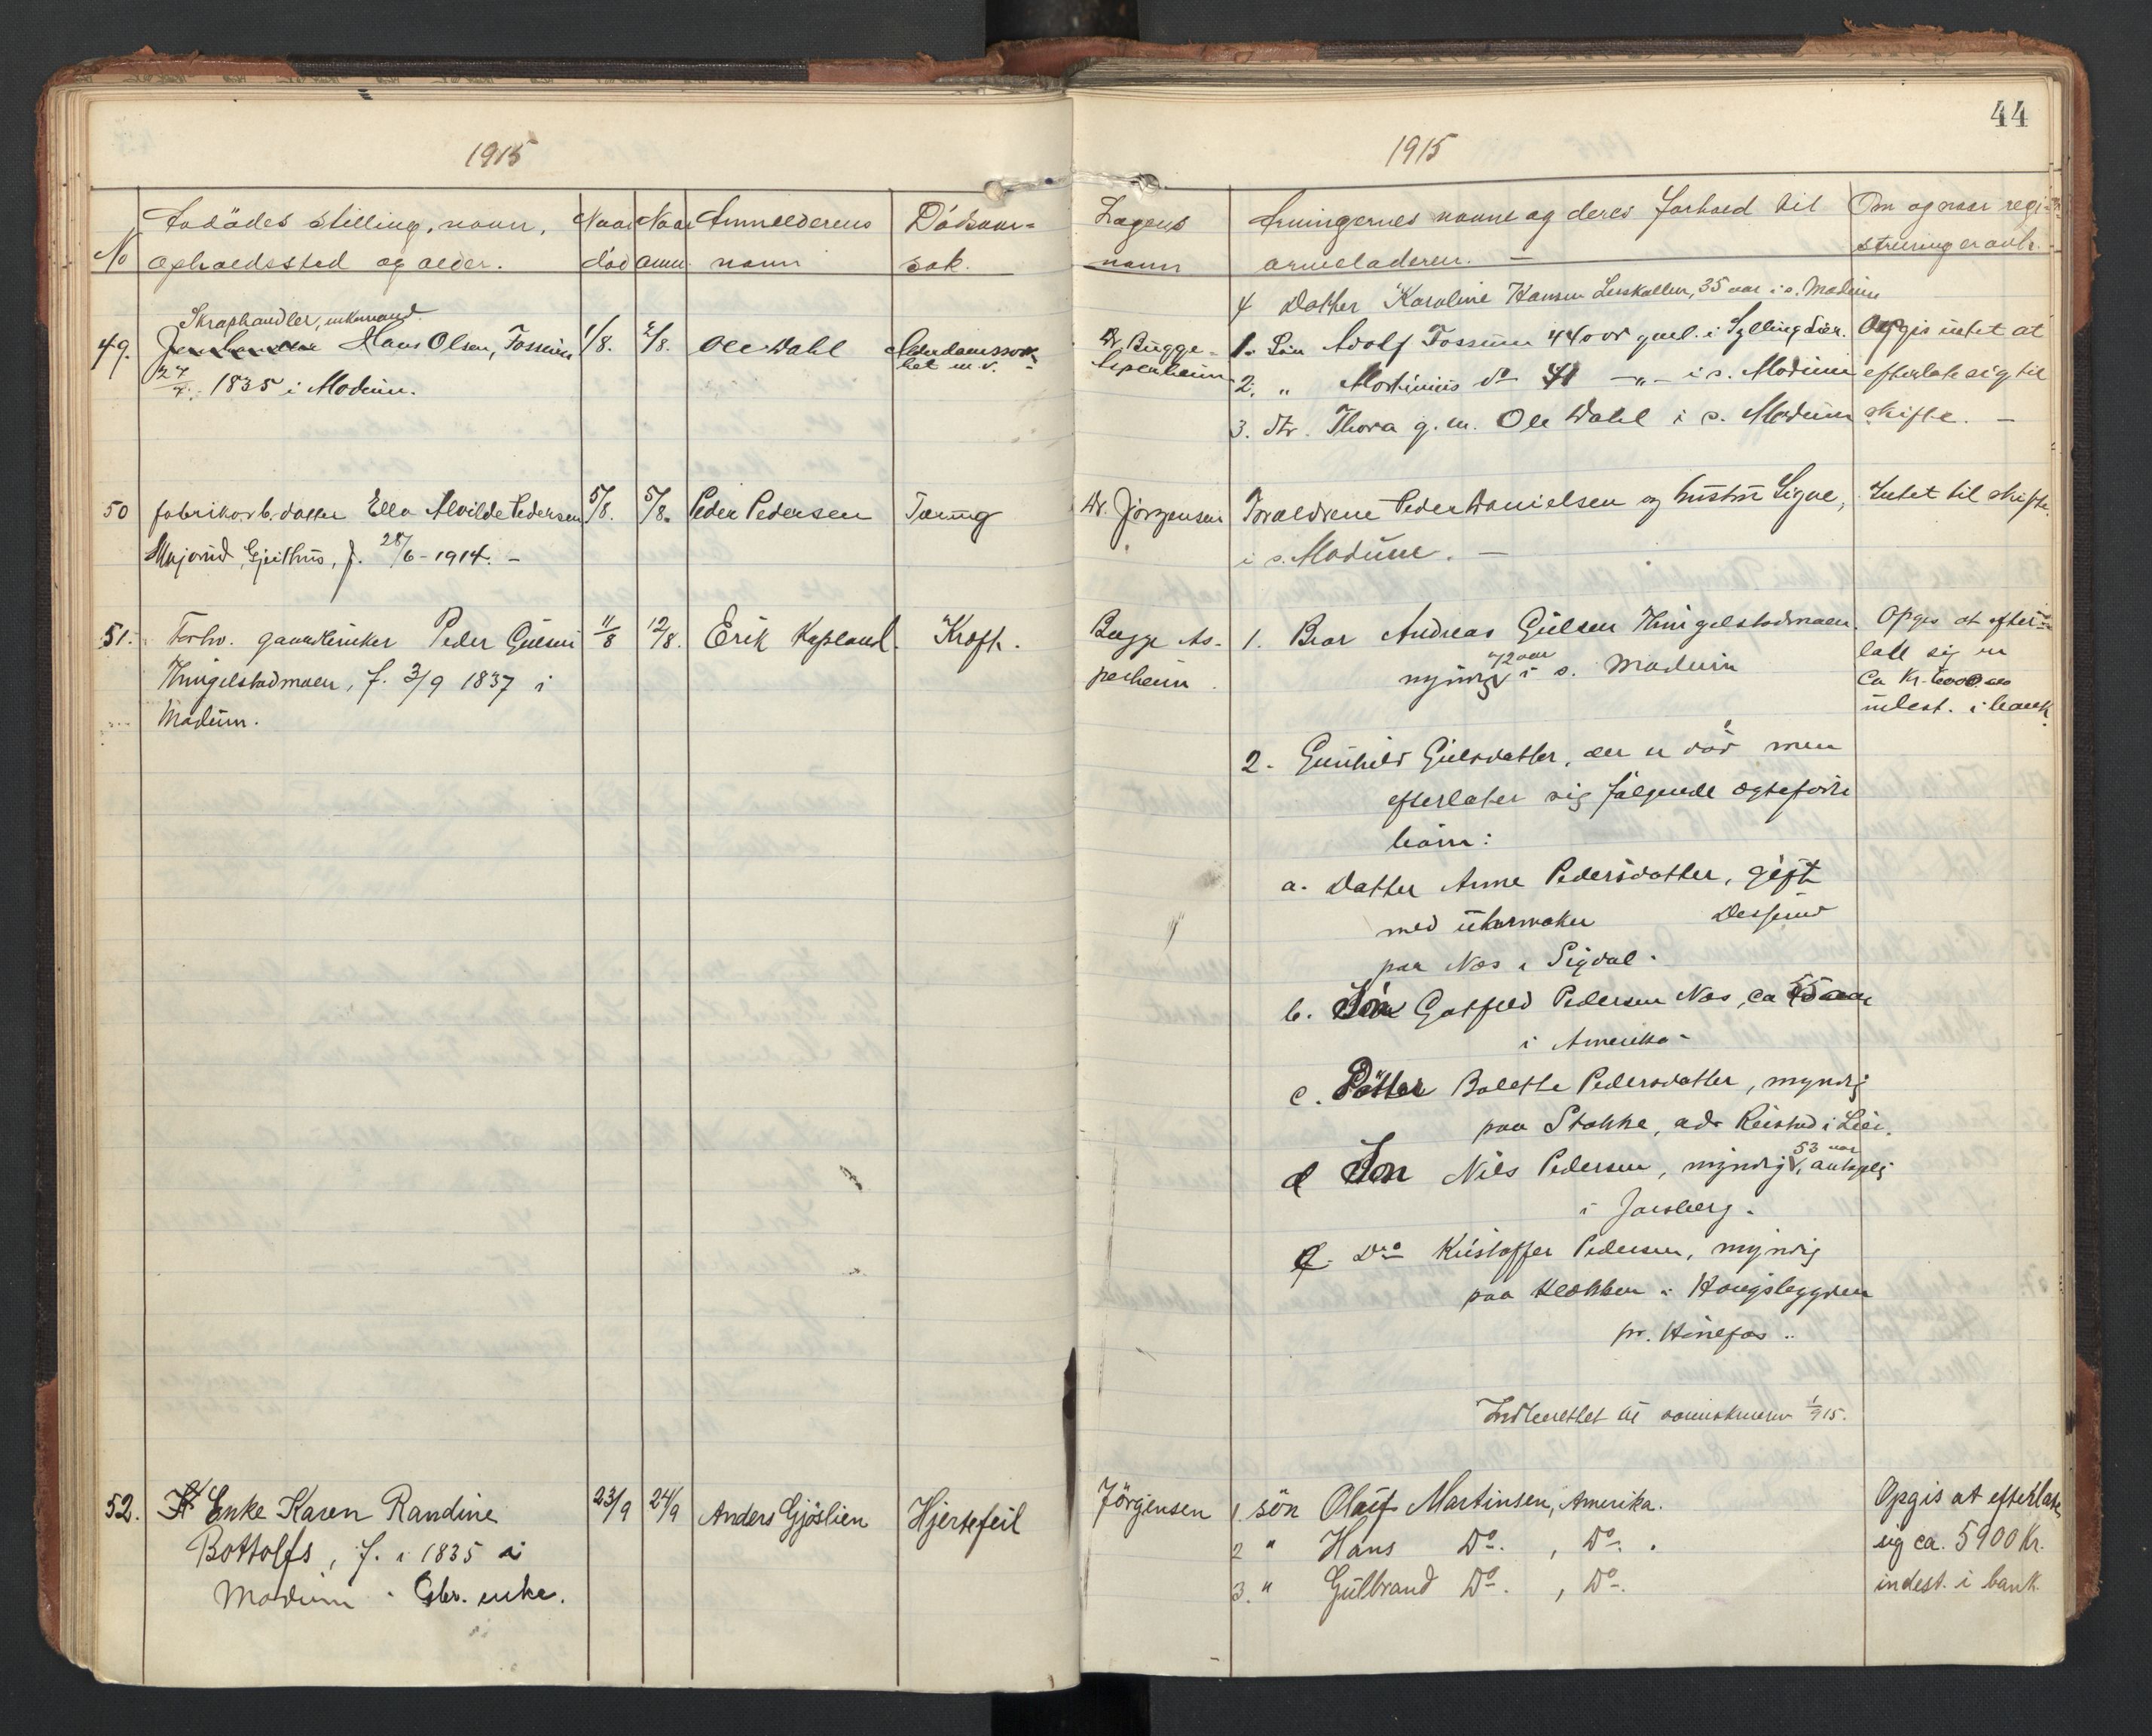 44
1915
1915
No
Avdödes stilling, navn,
opholdssted og alder.
Naar
död
Naar
anm.
Anmelderens
navn
Dödsaar-
sak.
Lægens
navn
Arvingernes navne og deres forhold til
arveladeren. —
Om og naar regi-
strering er avh.
4 Datter Karoline Hansen, 35 aar i s. Modum
49.
Skraphandler, enkemand
Hans Olsen, Fossum
27/7. 1835 i Modum.
1/8.
2/8.
Ole Wahl
Alderdomssvak-
het m.v.
Dr. Bugge-
Aspenheim
1. Sön Adolf Fossum 44 aar gml. i Sylling Lier.
2. " Mortinius do 41 -"- i s. Modum
3. dtr. Thora g. m. Ole Wahl i s. Modum
Opgis intet at
efterlate sig til
skifte. —
50
fabrikarb. datter Ella Alvilde Pedersen
Gjeithus, f. 28/6 - 1914. -
5/8.
5/8.
Peder Pedersen
Tæring
Dr. Jörgensen
Forældrene Peder Danielsen og hustru Signe,
i s. Modum. —
Intet til skifte.
51.
Forhv. gaardbruker Peder Gulsen
Hringelstadmoen, f. 3/9 1837 i
Modum.
11/8
12/8.
Erik Kopland.
Kræft.
Bugge As-
penheim.
1. Bror Andreas Gulsen Hringelstadmoen.
72 aar
myndig i s. Modum
Opgis at efter-
latt sig en
ca Kr. 6000.00
indest. i bank.
2. Gunhild Gulsdatter, der er död men
efterlater sig fölgende egtefödte
börn:
a. Datter Anne Pedersdatter, gift
med urmaker
paa Næs i Sigdal.
b. Sön Gotfred Pedersen Næs, ca 55 aar
i Amerika -
c. Datter Bolette Pedersdatter, myndig
paa Stokke, adr Reistad i Lier.
53 aar
d Sön Nils Pedersen, myndig, antagelig
i Jarlsberg.
Dro Kristoffer Pedersen, myndig
paa Klokken i Haugsbygden
pr. Hönefos ..
Indberettet til sorenskriveren 1/9 15.
52.
Enke Karen Randine
Bottolfs, f. i 1835 i
Modum . Gbr. enke.
23/9
24/9
Anders Gjöslien
Hjertefeil
Jörgensen
1. sön Olaf Martinsen, Amerika.
2 " Hans Do. , Do. .
3. " Gulbrand Do. , Do.
Opgis at efterlate
sig ca. 5900 Kr.
indest. i bank